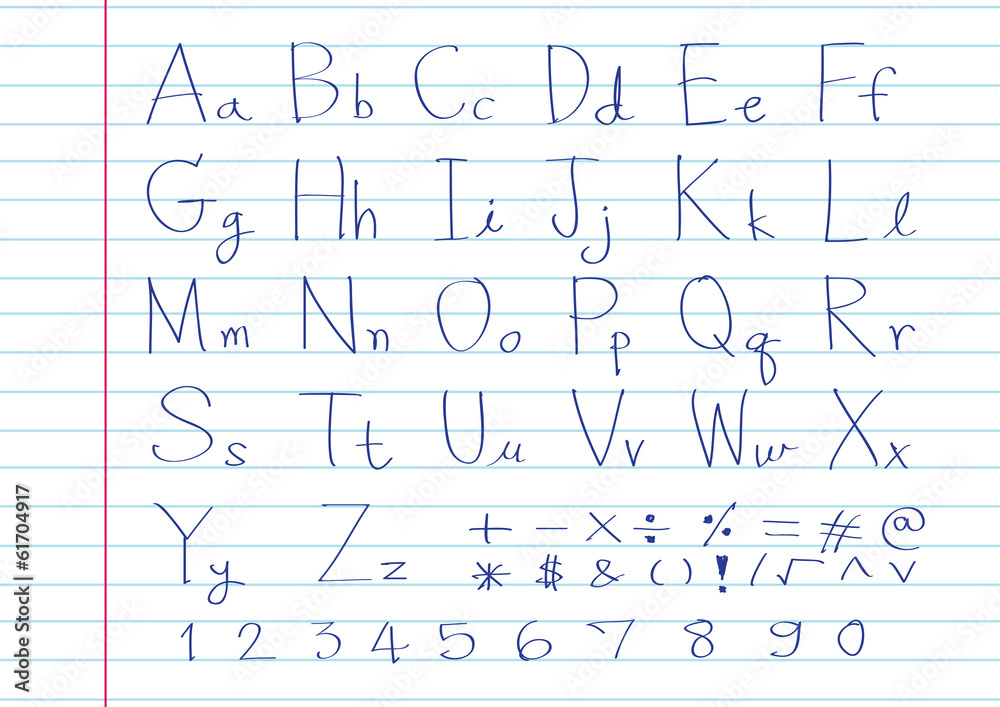 Aa Bb Cc Dd Ee Ff
Gg Hh Ii Jj Kk Ll
Mm Nn Oo Pp Qq Rr
Ss Tt Uu Vv Ww Xx
Yy Zz + − × ÷ % = # @
* $ & ( ) ! / √ ^ v
1 2 3 4 5 6 7 8 9 0
Adobe Stock | #61704917